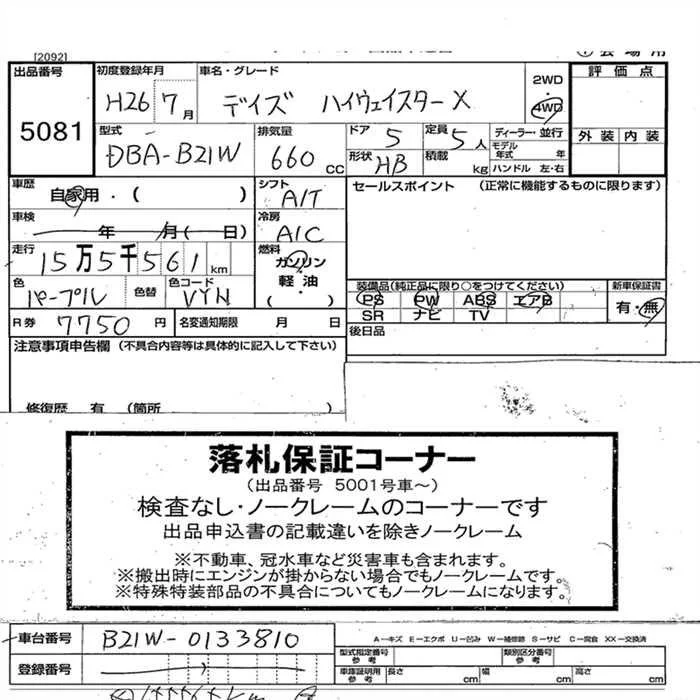 [2092]
出品番号 5081
初度登録年月 H26 7月
車名・グレード デイズ ハイウェイスターX
2WD・4WD
評価点
外装 内装
型式 DBA-B21W
排気量 660cc
ドア 5
定員 5人
形状 HB
積載 kg
ディーラー・並行
モデル年式 年
ハンドル 左・右
車歴 自家用・( )
シフト A/T
セールスポイント (正常に機能するものに限ります)
車検 年 月( 日)
冷房 A/C
走行 15万5千561km
燃料 ガソリン
軽油
( )
色 パープル
色替
色コード VYN
装備品(純正品に限り○をつけてください)
PS PW ABS エアB
SR ナビ TV
新車保証書
有・無
R券 7750円
名変通知期限 月 日
後日品
注意事項申告欄(不具合内容等は具体的に記入して下さい)
修復歴 有 (箇所 )
落札保証コーナー
(出品番号 5001号車～)
検査なし・ノークレームのコーナーです
出品申込書の記載違いを除きノークレーム
※不動車、冠水車など災害車も含まれます。
※搬出時にエンジンが掛からない場合でもノークレームです。
※特殊特装部品の不具合についてもノークレームになります。
車台番号 B21W-0133810
A－キズ E－エクボ U－凹み W－補修跡 S－サビ C－腐食 XX－交換済
登録番号
型式指定番号 参考
類別区分番号 参考
車庫証明用 参考 長さ cm 幅 cm 高さ cm